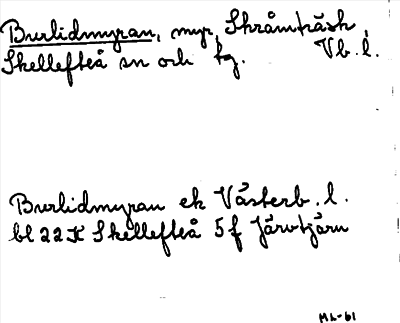 Burlidmyran, myr, Skråmträsk,
Skellefteå sn och kg. Vb. l.
Burlidmyran ek Västerb. l.
bl 22 K Skellefteå 5 f Järvtjärn
ML-61